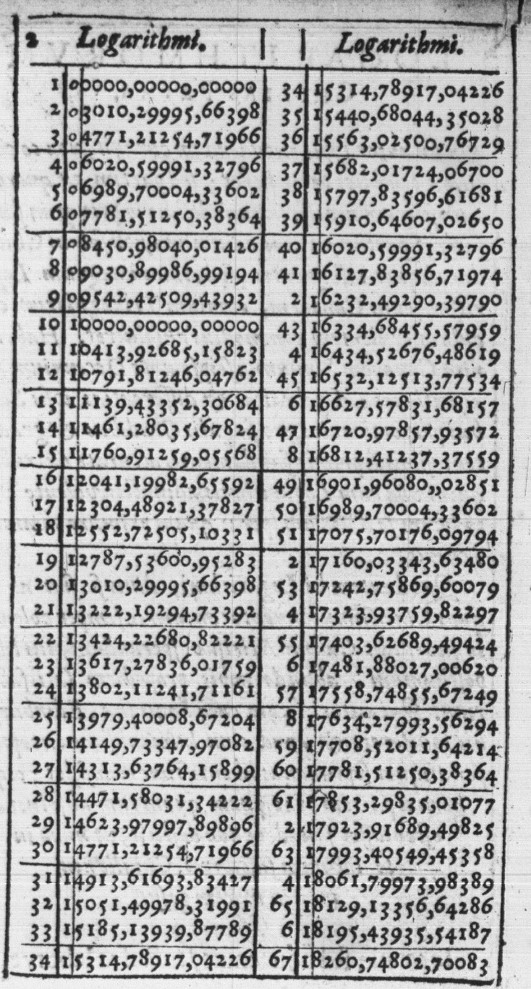 2 Logarithmi. Logarithmi.
1 00000,00000,00000 34 15314,78917,04226
2 03010,29995,66398 35 15440,68044,35028
3 04771,21254,71966 36 15563,02500,76729
4 06020,59991,32796 37 15682,01724,06700
5 06989,70004,33602 38 15797,83596,61681
6 07781,51250,38364 39 15910,64607,02650
7 08450,98040,01426 40 16020,59991,32796
8 09030,89986,99194 41 16127,83856,71974
9 09542,42509,43932 2 16232,49290,39790
10 10000,00000,00000 43 16334,68455,57959
11 10413,92685,15823 4 16434,52676,48619
12 10791,81246,04762 45 16532,12513,77534
13 11139,43352,30684 6 16627,57831,68157
14 11461,28035,67824 47 16720,97857,93572
15 11760,91259,05568 8 16812,41237,37559
16 12041,19982,65592 49 16901,96080,,02851
17 12304,48921,37827 50 16989,70004,33602
18 12552,72505,10331 51 17075,70176,09794
19 12787,53600,95283 2 17160,03343,63480
20 13010,29995,66398 53 17242,75869,60079
21 13222,19294,73392 4 17323,93759,82297
22 13424,22680,82221 55 17403,62689,49424
23 13617,27836,01759 6 17481,88027,00620
24 13802,11241,71161 57 17558,74855,67249
25 13979,40008,67204 8 17634,27993,56294
26 14149,73347,97082 59 17708,52011,64214
27 14313,63764,15899 60 17781,51250,38364
28 14471,58031,34222 61 17853,29835,01077
29 14623,97997,89896 2 17923,91689,49825
30 14771,21254,71966 63 17993,40549,45358
31 14913,61693,83427 4 18061,79973,98389
32 15051,49978,31991 65 18129,13356,64286
33 15185,13939,87789 6 18195,43935,54187
34 15314,78917,04226 67 18260,74802,70083